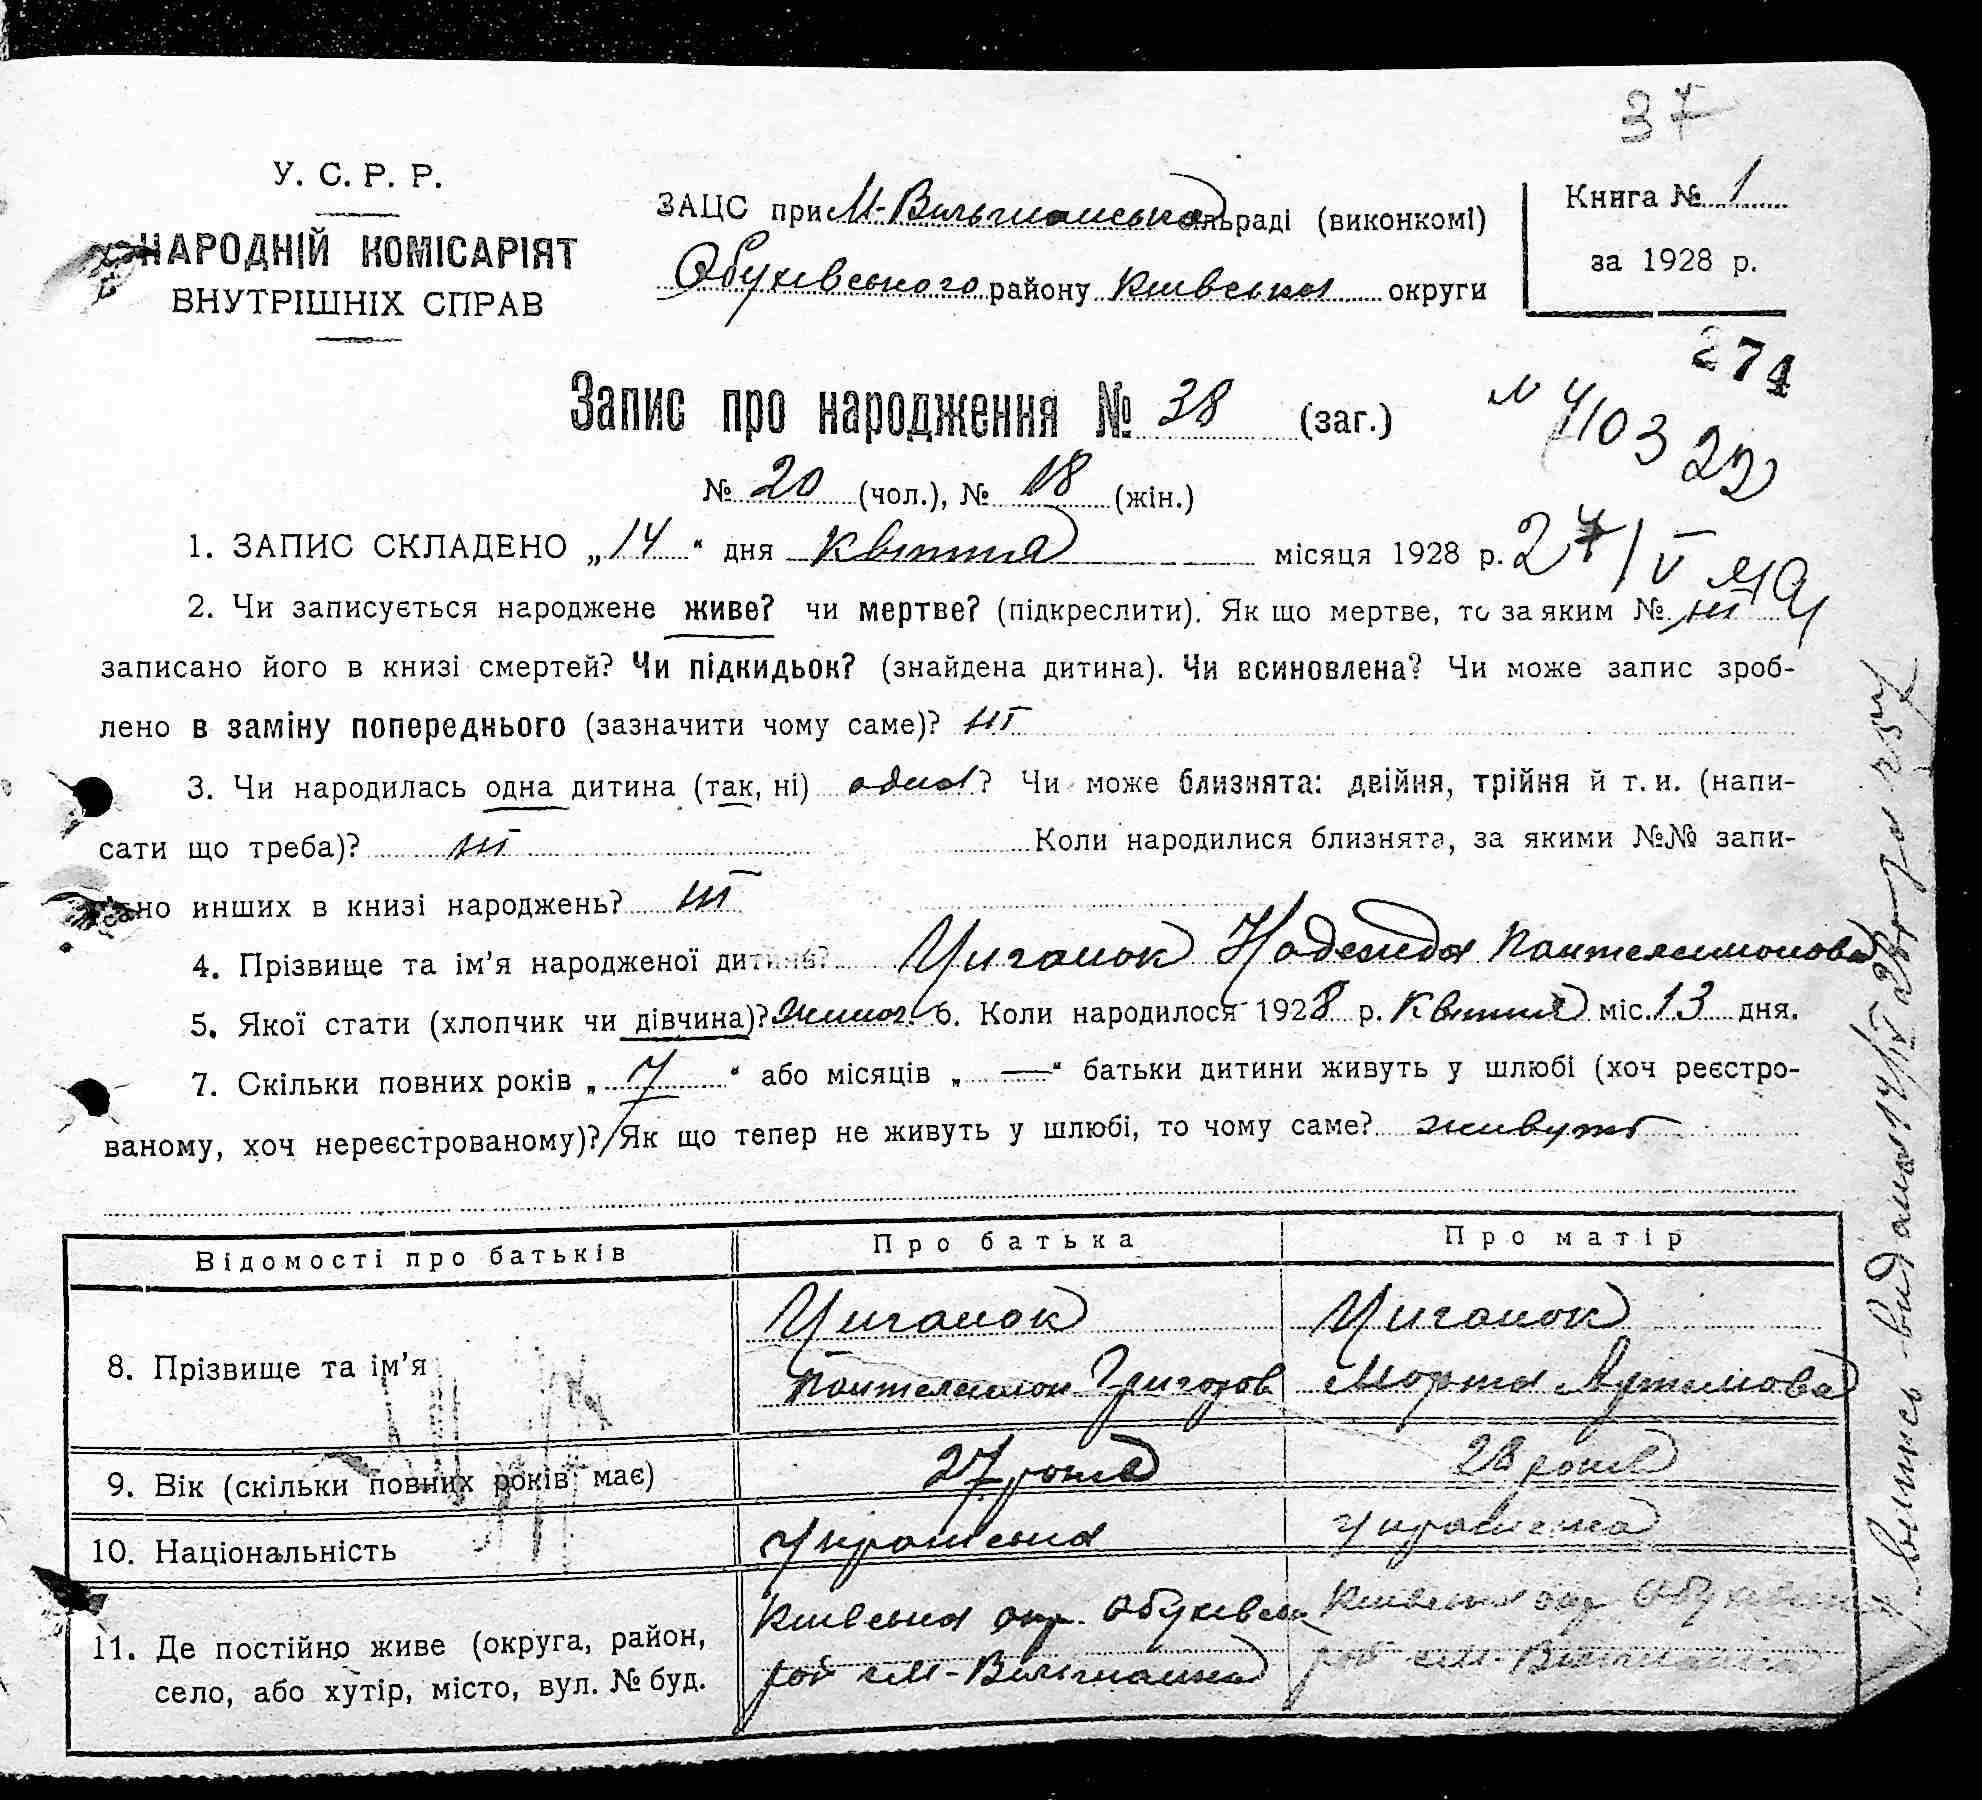 37
У. С. Р. Р.
НАРОДНІЙ КОМІСАРІЯТ
ВНУТРІШНІХ СПРАВ
ЗАЦС при М-Вильшанська сільраді (виконкомі)
Обухівського району Київська округи
Книга № 1
за 1928 р.
274
Запис про народження № 38 (заг.)
№ 20 (чол.), № 18 (жін.)
1. ЗАПИС СКЛАДЕНО „14“ дня квітня місяця 1928 р.
2. Чи записується народжене живе? чи мертве? (підкреслити). Як що мертве, то за яким № ні
записано його в книзі смертей? Чи підкидьок? (знайдена дитина). Чи всиновлена? Чи може запис зроб-
лено в заміну попереднього (зазначити чому саме)? ні
3. Чи народилась одна дитина (так, ні) одна? Чи може близнята: двійня, трійня й т. и. (напи-
сати що треба)? ні Коли народилися близнята, за якими №№ запи-
сано инших в книзі народжень? ні
4. Прізвище та ім'я народженої дитини? Циганок Надежда Пантелеимонова
5. Якої стати (хлопчик чи дівчина)? жіноч. 6. Коли народилося 1928 р. Квітня міс. 13 дня.
7. Скільки повних років „7“ або місяців „—“ батьки дитини живуть у шлюбі (хоч реєстро-
ваному, хоч нереєстрованому)? Як що тепер не живуть у шлюбі, то чому саме? живуть
Відомості про батьків
Про батька
Про матір
8. Прізвище та ім'я
Циганок
Пантелеимон Григоров
Циганок
Марта Артемова
9. Вік (скільки повних років має)
27 років
28 років
10. Національність
українська
українка
11. Де постійно живе (округа, район,
село, або хутір, місто, вул. № буд.
Київська окр. Обухівськ
рой с М-Вильшанка
Київська окр Обухівськ
рой с М-Вильшанка
Випись видана 14/IV 28 р